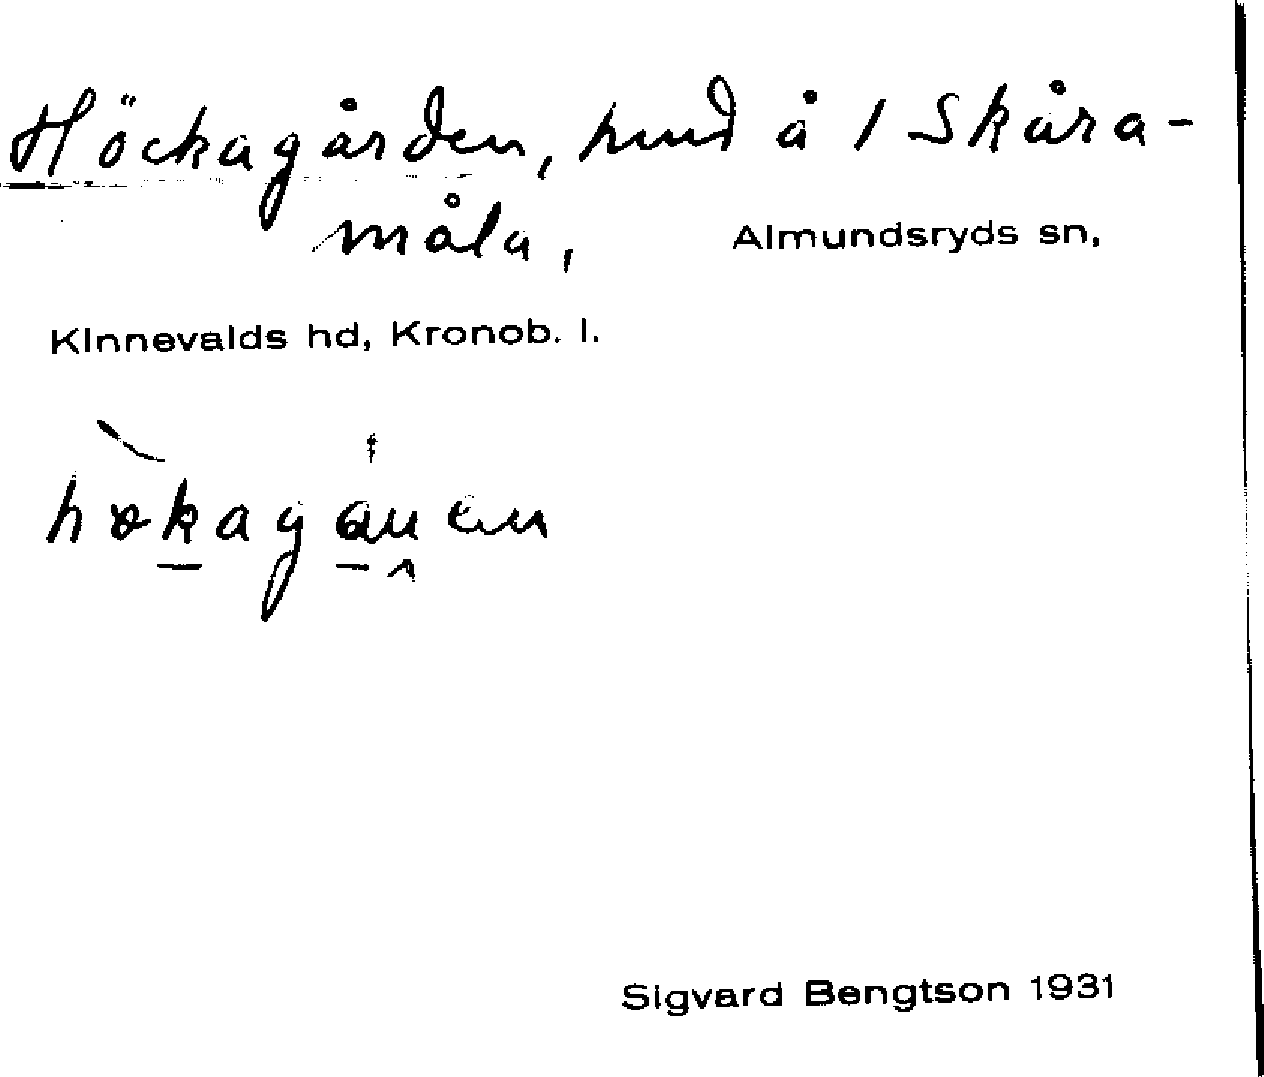 Höckagården, hmd å 1 Skåra-
måla, Almundsryds sn,
Kinnevalds hd, Kronob. l.
Sigvard Bengtson 1931